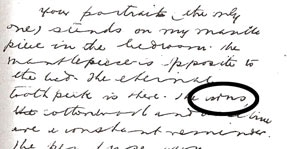 your portrait (the only
one) stands on my mantle
piece in the bedroom. The
mantlepiece is opposite to
the bed. The eternal
toothpick is there. The
the cottonwood and
are a constant reminder.
The